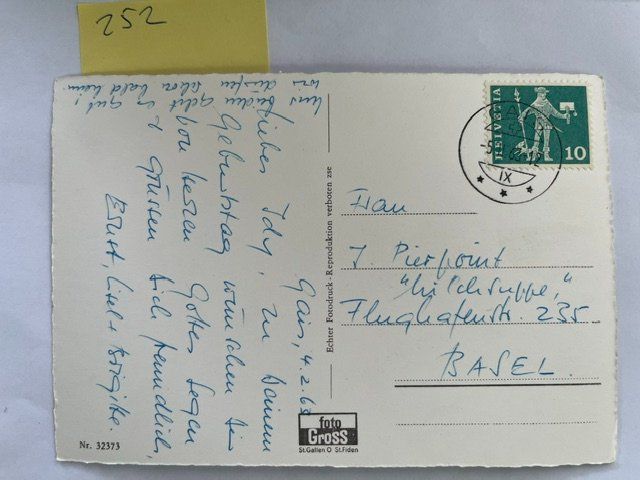 252
Gais, 4.2.63
Liebes Idy, zu Deinem
Geburtstag wünschen Dir
von Herzen Gottes Segen
& grüssen Dich freundlich,
Ernst, Lisel & Brigitte.
Uns beiden geht es gut!
wir dürfen schon bald heim.
Echter Fotodruck - Reproduktion verboten zse
HELVETIA
10
IX
Frau
J. Pierpoint
"Milchsuppe,"
Flughafenstr. 235
BASEL
foto
Gross
St.Gallen O St.Fiden
Nr. 32373